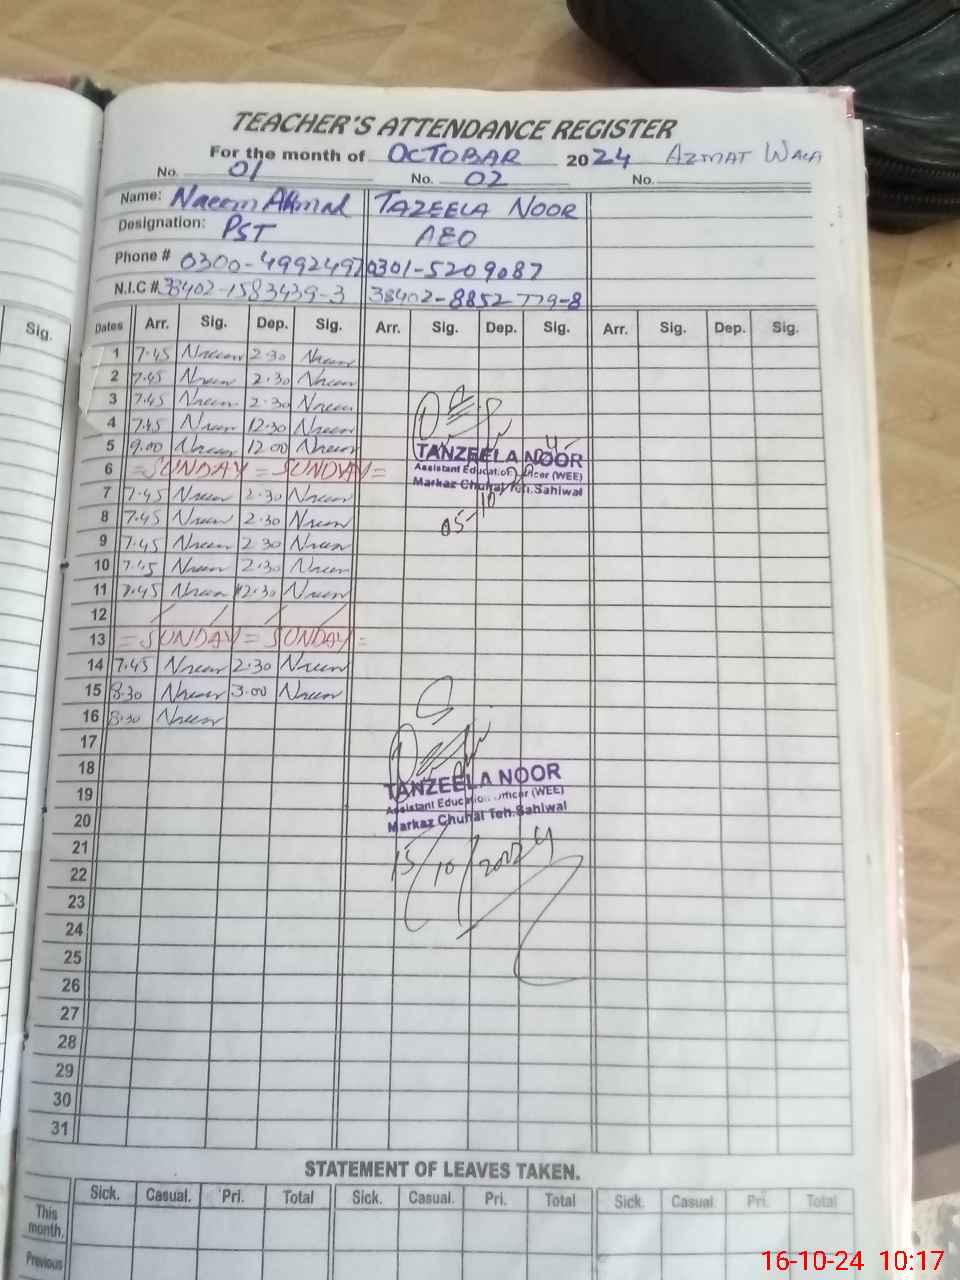 TEACHER'S ATTENDANCE REGISTER
For the month of OCTOBAR 2024 AZMAT WALA
No. 01 No. 02 No.
Name: Naeem Ahmad TAZEELA NOOR
Designation: PST AEO
Phone # 0300-4992497 0301-5209087
N.I.C # 38402-1583439-3 38402-8852779-8
Sig. Dates Arr. Sig. Dep. Sig. Arr. Sig. Dep. Sig. Arr. Sig. Dep. Sig.
1 7.45 Naeem 2.30 Naeem
2 7.45 Naeem 2.30 Naeem
3 7.45 Naeem 2.30 Naeem
4 7.45 Naeem 12.30 Naeem
5 9.00 Naeem 12.00 Naeem
TANZEELA NOOR
Assistant Education Officer (WEE)
Markaz Chuhal Teh.Sahiwal
05-10-
6 = SUNDAY = SUNDAY =
7 7.45 Naeem 2.30 Naeem
8 7.45 Naeem 2.30 Naeem
9 7.45 Naeem 2.30 Naeem
10 7.45 Naeem 2.30 Naeem
11 7.45 Naeem 12.30 Naeem
12
13 = SUNDAY = SUNDAY =
14 7.45 Naeem 2.30 Naeem
15 8.30 Naeem 3.00 Naeem
16 8.30 Naeem
17
18
TANZEELA NOOR
Assistant Education Officer (WEE)
Markaz Chuhal Teh.Sahiwal
15/10/2024
19
20
21
22
23
24
25
26
27
28
29
30
31
STATEMENT OF LEAVES TAKEN.
Sick. Casual. Pri. Total Sick. Casual. Pri. Total Sick. Casual. Pri. Total
This month.
Previous
16-10-24 10:17